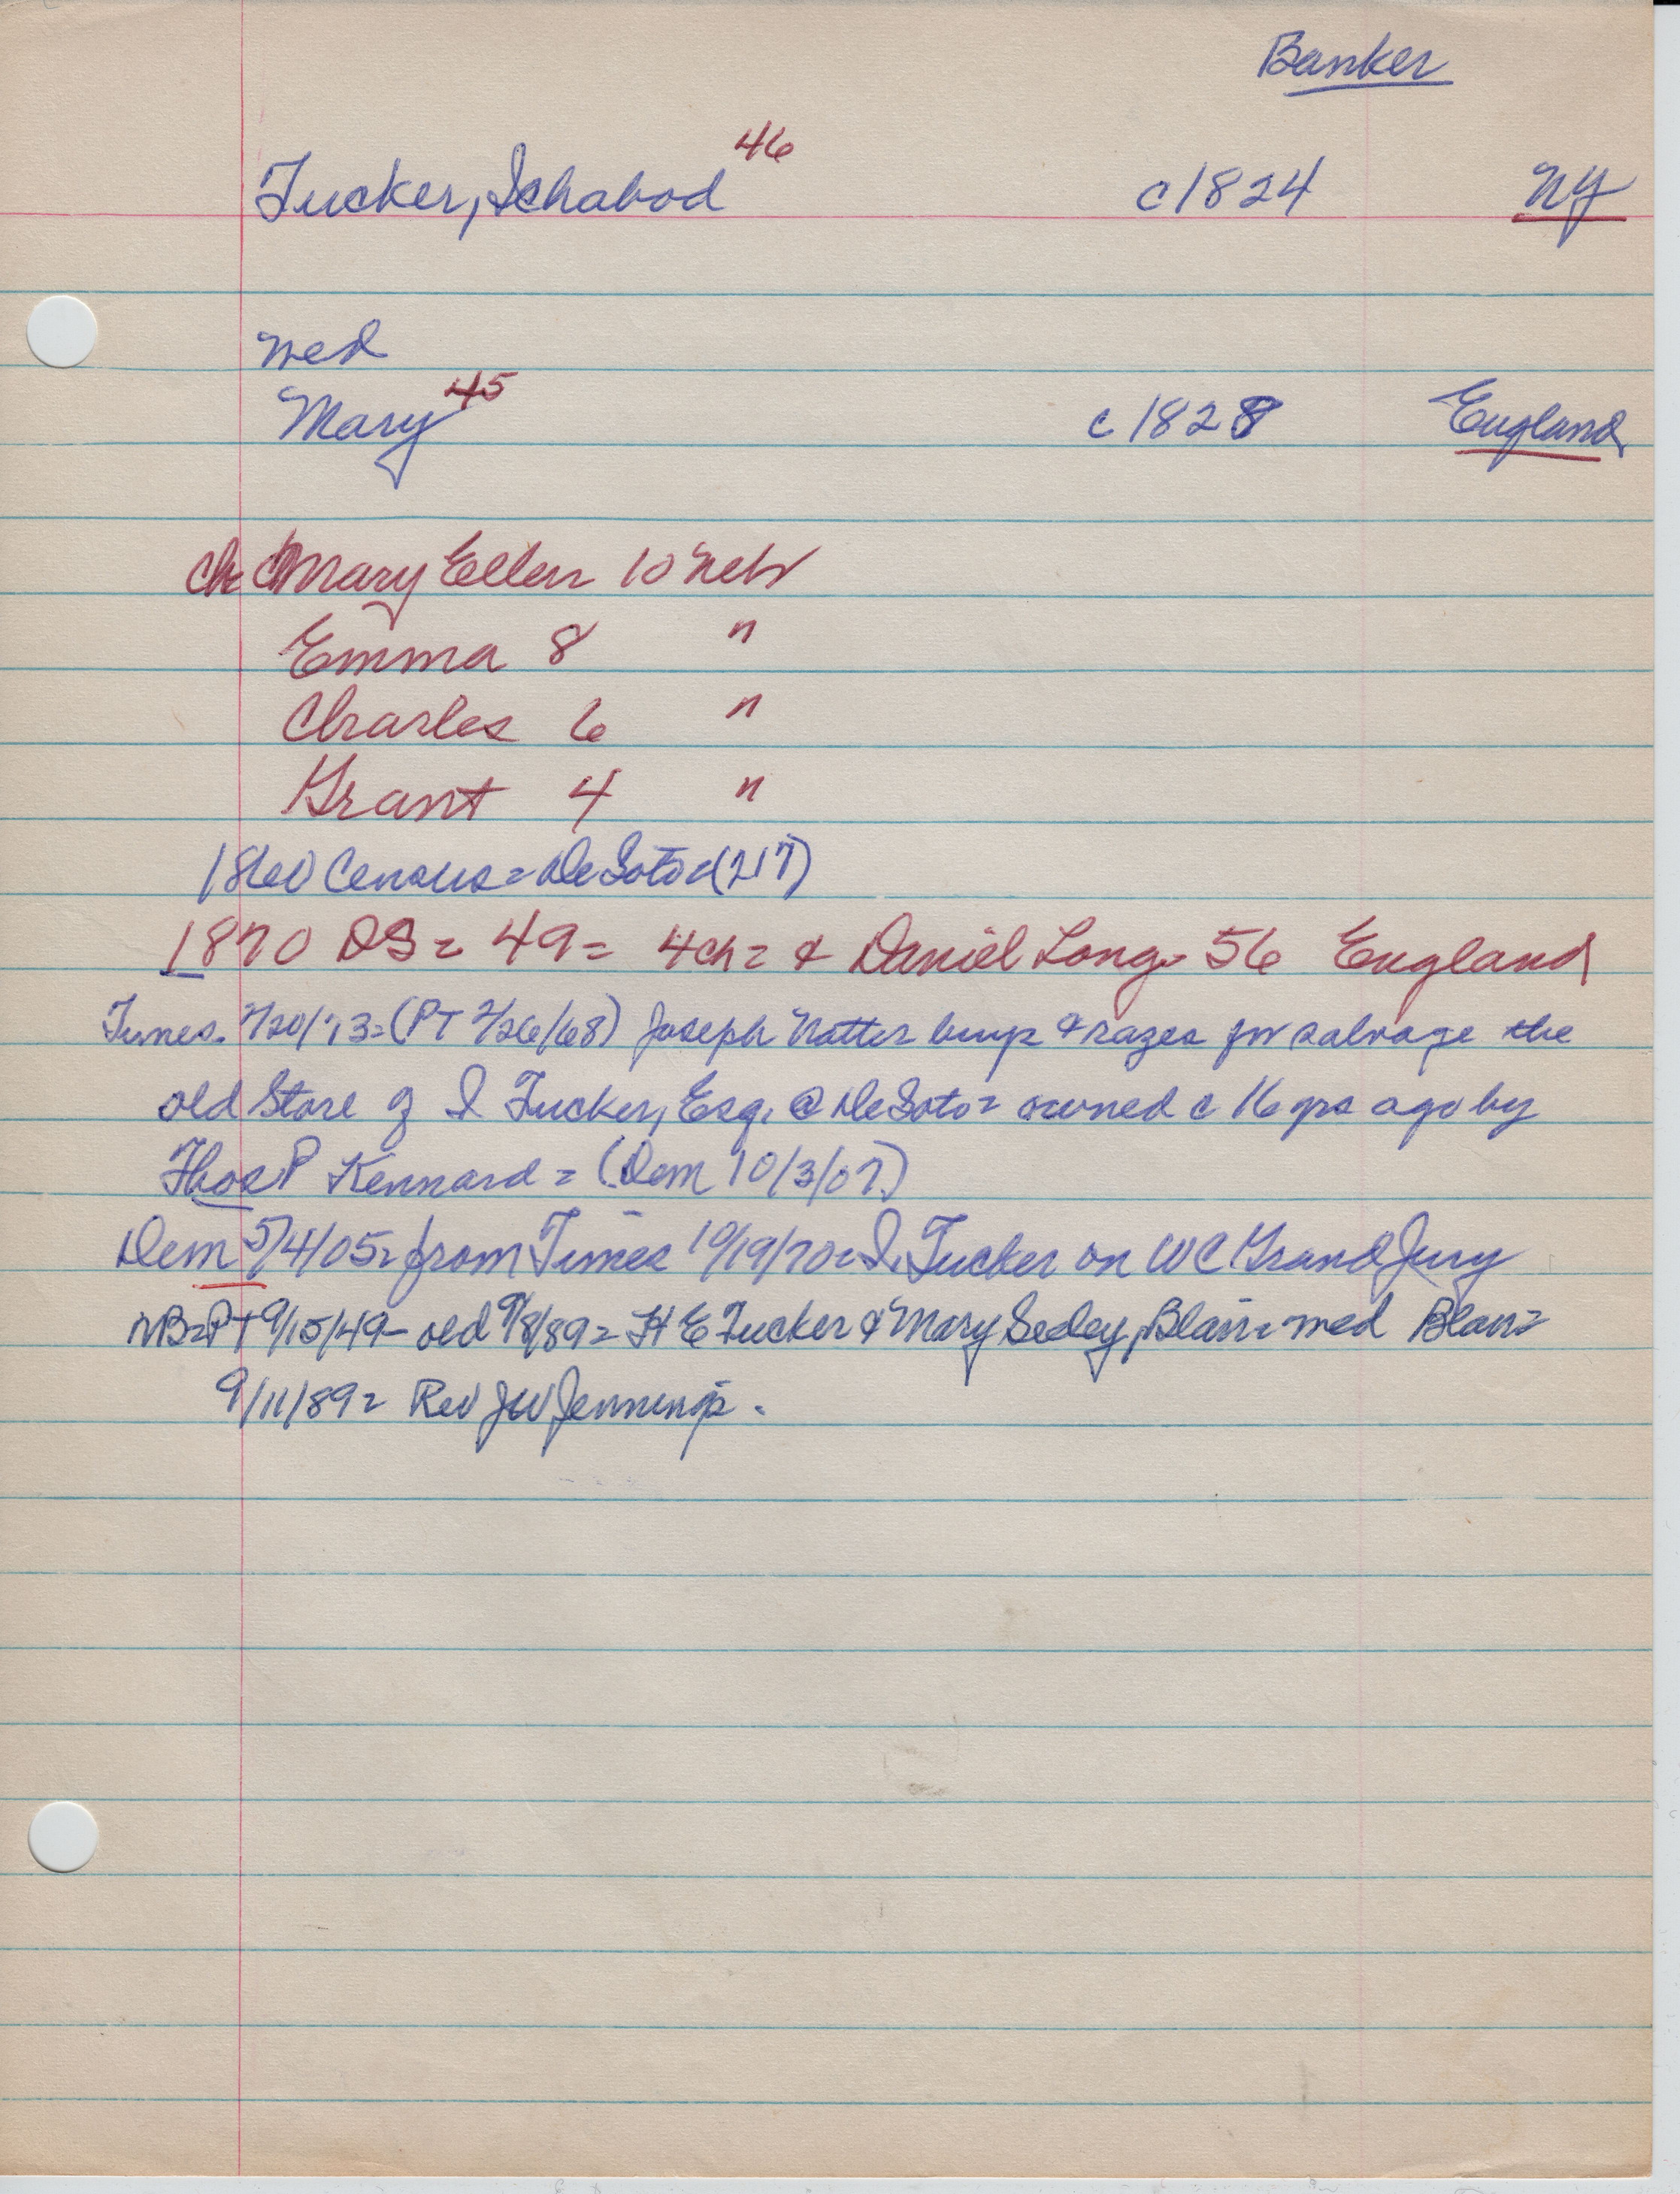 Banker
Tucker, Ichabod 46 c1824 NY
med
Mary 45 c1828 England
ch Mary Ellen 10 Neb
Emma 8 "
Charles 6 "
Grant 4 "
1860 Census = DeSoto = (217)
1870 DS = 49 = 4ch = & Daniel Long - 56 England
Times. /20/73 = (PT 2/26/68) Joseph Natter buys & razes for salvage the
old Store of I Tucker, Esq. @ DeSoto = owned c 16 yrs ago by
Thos P Kennard = (Dem 10/3/07)
Dem 5/4/05 = from Times 10/19/70 = I. Tucker on WC Grand Jury
NB = PT 9/15/49 - old 9/8/89 = H E Tucker & Mary Seeley, Blair = med Blair =
9/11/89 = Rev JW Jennings.